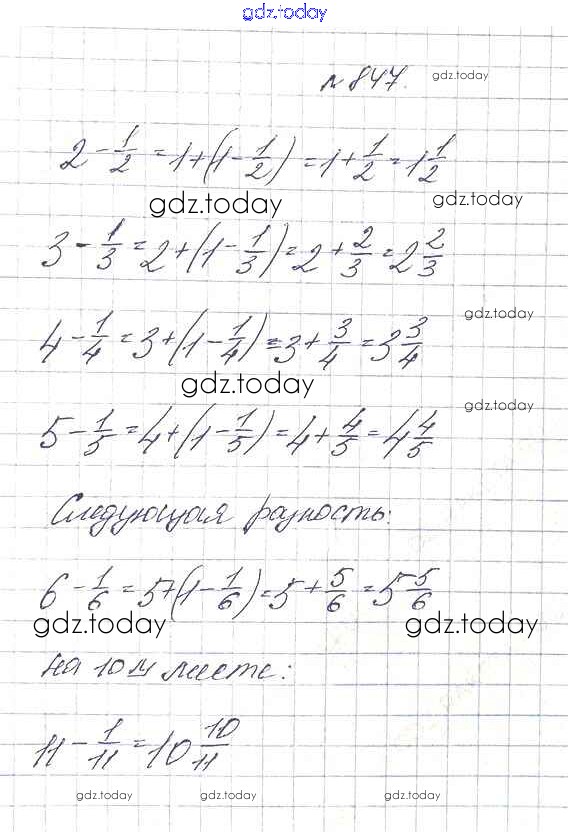 gdz.today
№ 847. gdz.today
2 - 1/2 = 1 + (1 - 1/2) = 1 + 1/2 = 1 1/2
gdz.today gdz.today
3 - 1/3 = 2 + (1 - 1/3) = 2 + 2/3 = 2 2/3
gdz.today
4 - 1/4 = 3 + (1 - 1/4) = 3 + 3/4 = 3 3/4
gdz.today
gdz.today
5 - 1/5 = 4 + (1 - 1/5) = 4 + 4/5 = 4 4/5
Следующая разность:
6 - 1/6 = 5 + (1 - 1/6) = 5 + 5/6 = 5 5/6
gdz.today gdz.today
на 10м месте:
11 - 1/11 = 10 10/11
gdz.today gdz.today gdz.today